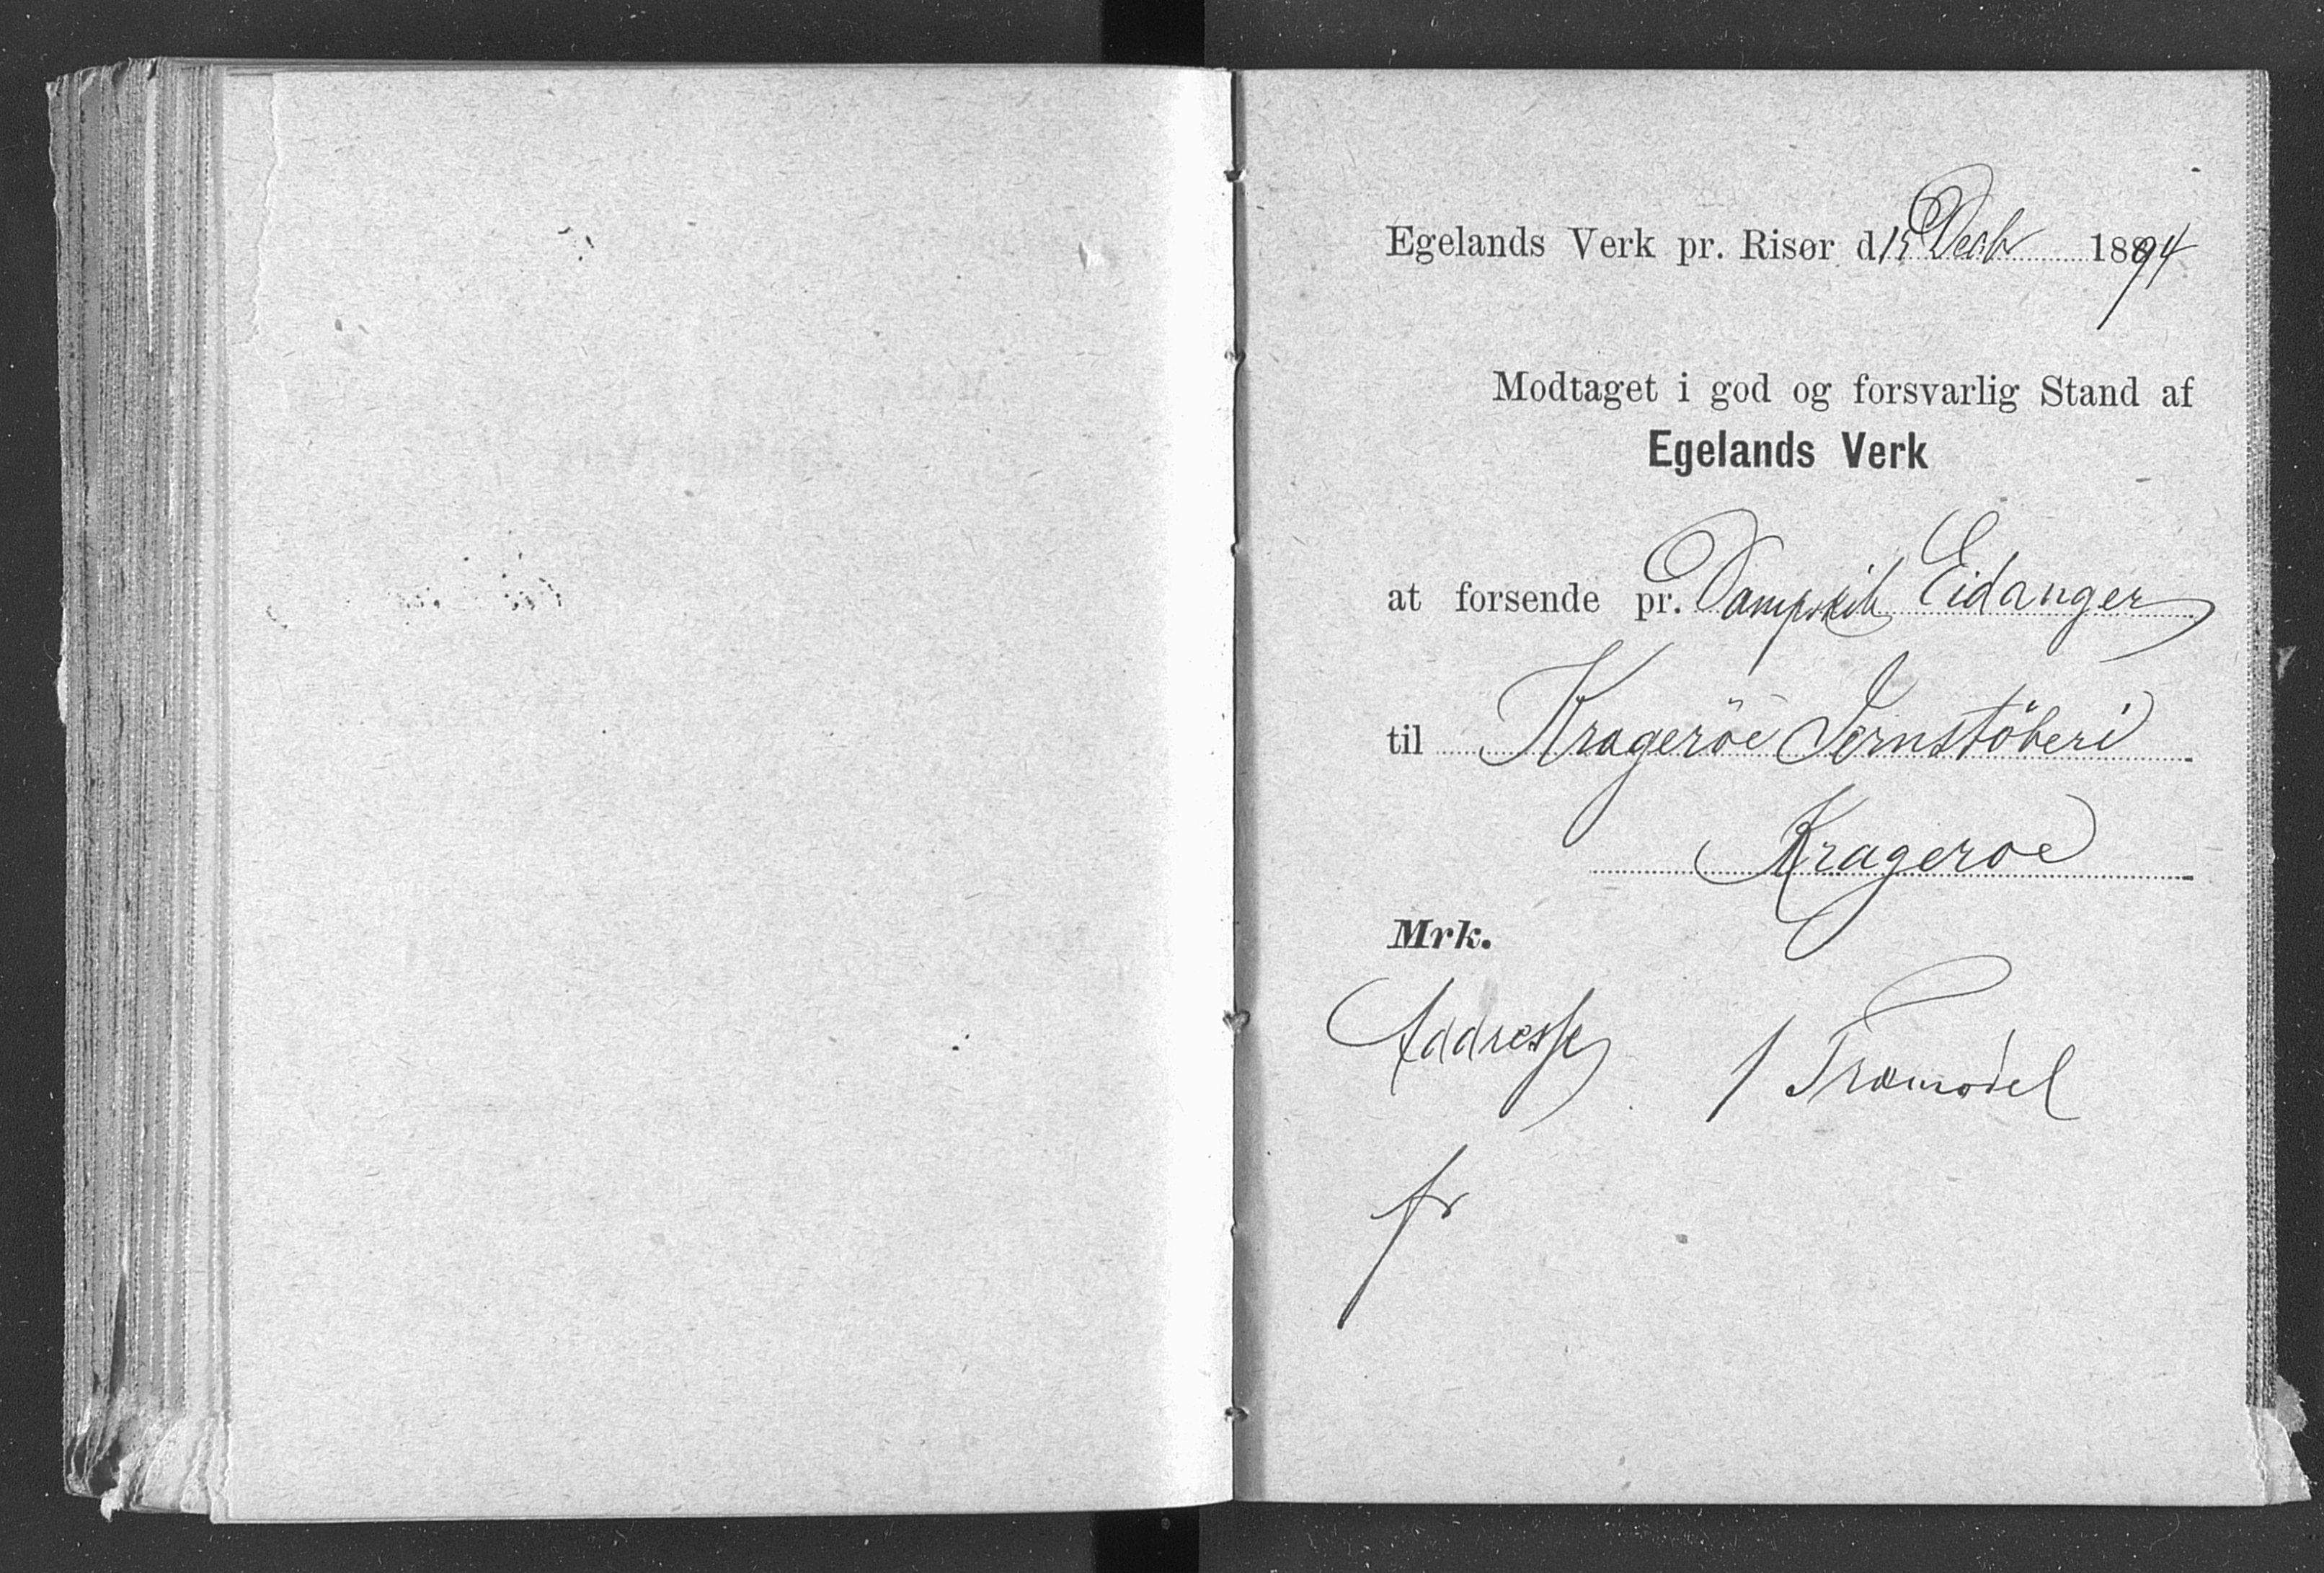 Egelands Verk pr. Risør d. 15 Decb 1894
Modtaget i god og forsvarlig Stand af
Egelands Verk
at forsende pr. Dampskib Eidanger
til Krageröe Jernstöberi
Krageroe
Mrk.
Addresse 1 Træmodel
fr